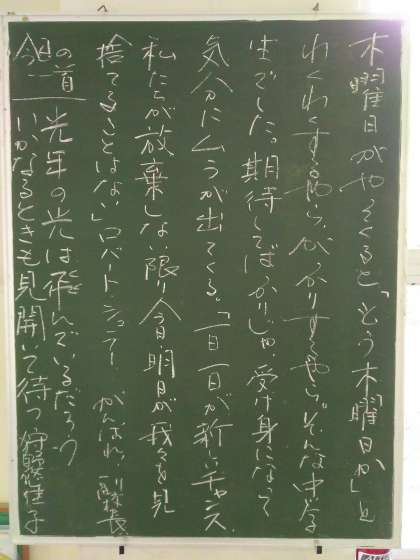 木曜日がやってくると「もう木曜日か」と
わくわくするやら、がっかりするやら。そんな中だる
生でした。期待してばかりじゃ、受け身になって
気分にムラが出てくる。「一日一日が新しいチャンス
私たちが放棄しない限り今日、明日が我々を見
捨てることはない」ロバート・シュラー がんばれ!
今日の一首 光年の光は飛んでいるだろう
いかなるときも見開いて待つ